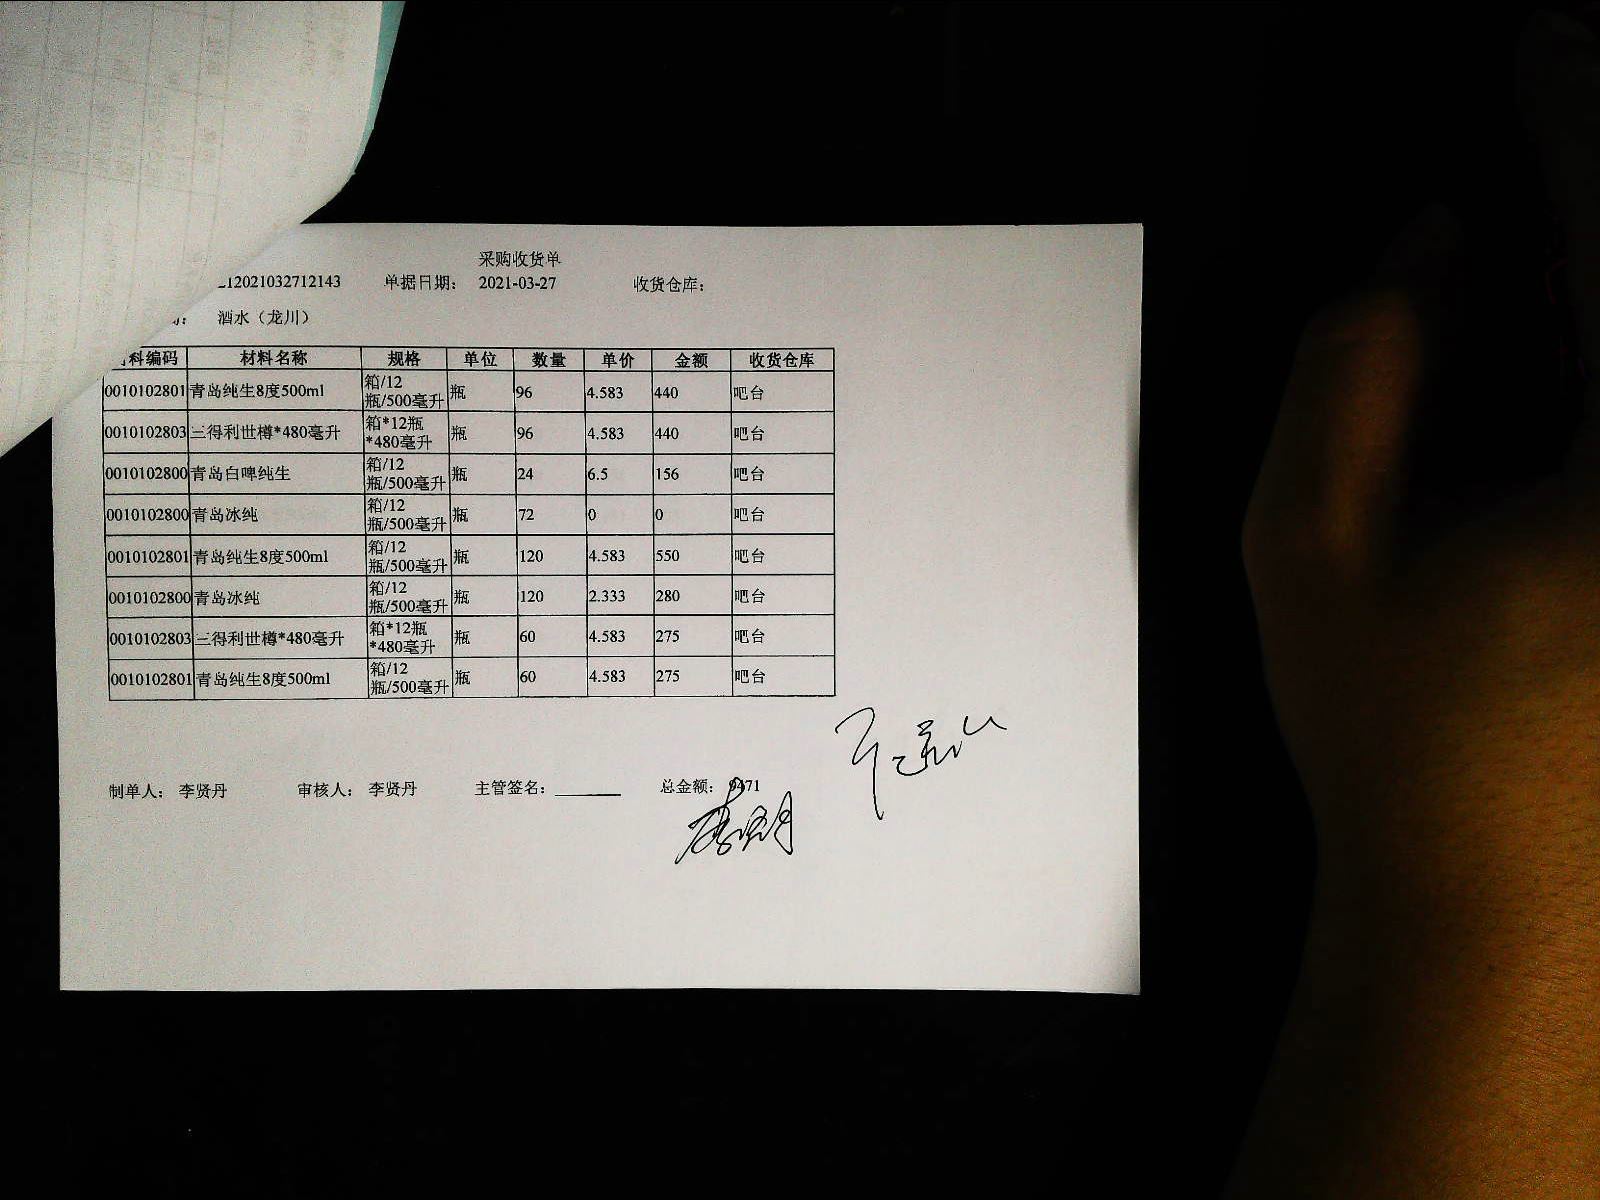 采购收货单
12021032712143 单据日期： 2021-03-27 收货仓库：
酒水（龙川）
料编码 材料名称 规格 单位 数量 单价 金额 收货仓库
0010102801 青岛纯生8度500ml 箱/12瓶/500毫升 瓶 96 4.583 440 吧台
0010102803 三得利世樽*480毫升 箱*12瓶*480毫升 瓶 96 4.583 440 吧台
0010102800 青岛白啤纯生 箱/12瓶/500毫升 瓶 24 6.5 156 吧台
0010102800 青岛冰纯 箱/12瓶/500毫升 瓶 72 0 0 吧台
0010102801 青岛纯生8度500ml 箱/12瓶/500毫升 瓶 120 4.583 550 吧台
0010102800 青岛冰纯 箱/12瓶/500毫升 瓶 120 2.333 280 吧台
0010102803 三得利世樽*480毫升 箱*12瓶*480毫升 瓶 60 4.583 275 吧台
0010102801 青岛纯生8度500ml 箱/12瓶/500毫升 瓶 60 4.583 275 吧台
制单人： 李贤丹 审核人： 李贤丹 主管签名： 总金额：